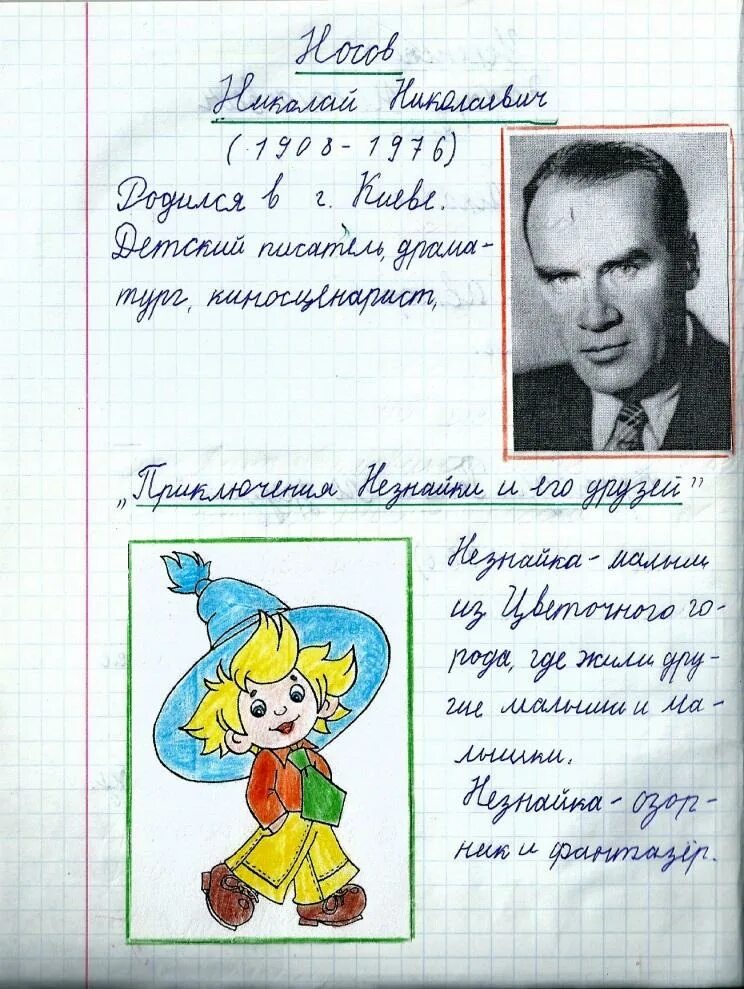 Носов
Николай Николаевич
(1908-1976)
Родился в г. Киеве.
Детский писатель, драма-
тург, киносценарист,
„Приключения Незнайки и его друзей"
Незнайка - малыш
из Цветочного го-
рода, где жили дру-
гие малыши и ма-
лышки.
Незнайка - озор-
ник и фантазёр.